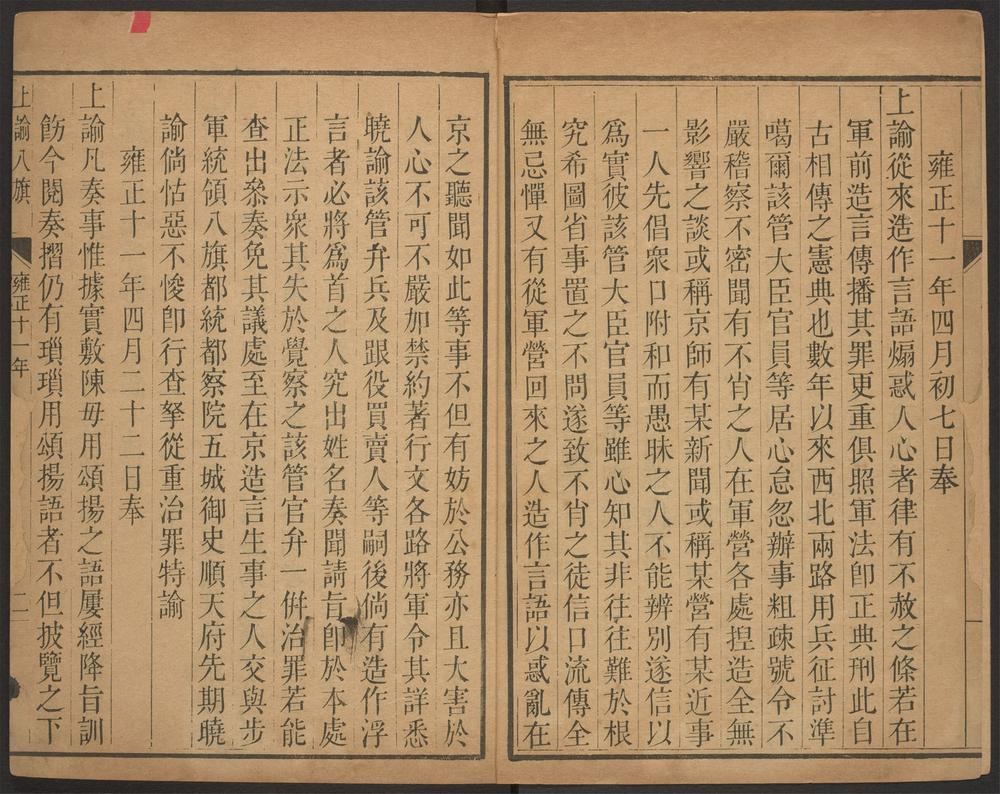 雍正十一年四月初七日奉
上諭從來造作言語煽惑人心者律有不赦之條若在
軍前造言傳播其罪更重俱照軍法卽正典刑此自
古相傳之憲典也數年以來西北兩路用兵征討準
噶爾該管大臣官員等居心怠忽辦事粗疎號令不
嚴稽察不密聞有不肖之人在軍營各處揑造全無
影響之談或稱京師有某新聞或稱某營有某近事
一人先倡衆口附和而愚昧之人不能辨別遂信以
爲實彼該管大臣官員等雖心知其非往往難於根
究希圖省事置之不問遂致不肖之徒信口流傳全
無忌憚又有從軍營回來之人造作言語以惑亂在
京之聽聞如此等事不但有妨於公務亦且大害於
人心不可不嚴加禁約著行文各路將軍令其詳悉
曉諭該管弁兵及跟役買賣人等嗣後倘有造作浮
言者必將爲首之人究出姓名奏聞請旨卽於本處
正法示衆其失於覺察之該管官弁一倂治罪若能
查出叅奏免其議處至在京造言生事之人交與步
軍統領八旗都統都察院五城御史順天府先期曉
諭倘怙惡不悛卽行查拏從重治罪特諭
雍正十一年四月二十二日奉
上諭凡奏事惟據實敷陳毋用頌揚之語屢經降旨訓
飭今閱奏摺仍有瑣瑣用頌揚語者不但披覽之下
上諭八旗
雍正十一年
二